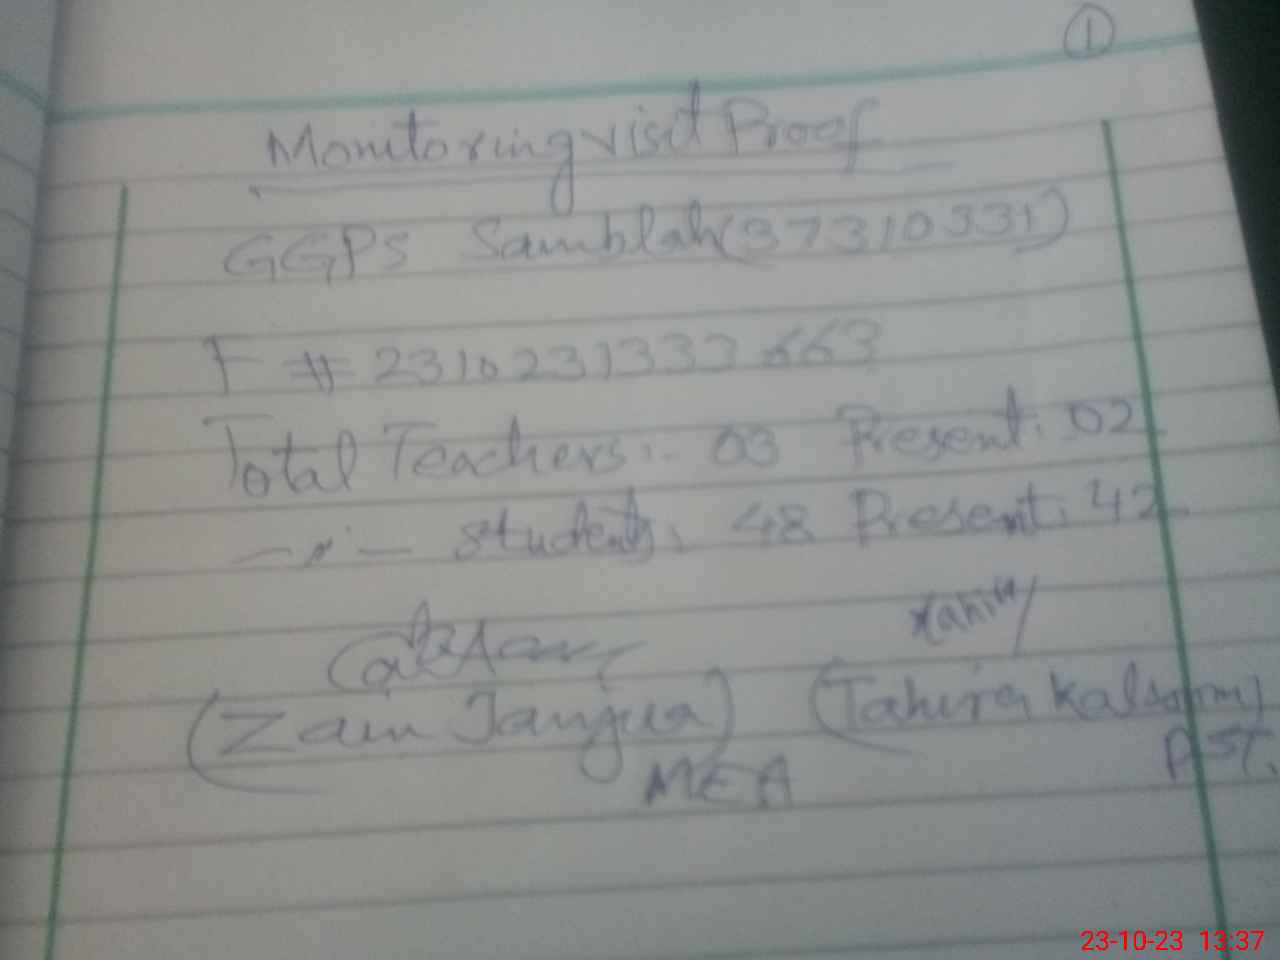 ①
Monitoring visit Proof
GGPS Samblah (37310331)
F # 2310231333663
Total Teachers:- 03 Present: 02
—〃— students: 48 Present: 42
(Zain Janjua) (Tahira Kalsoom)
MEA PST.
23-10-23 13:37